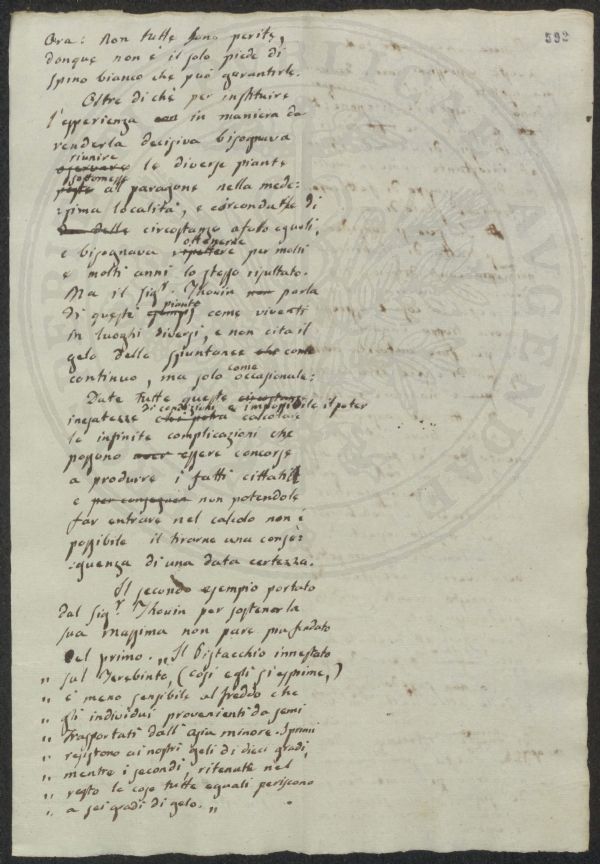 592
Ora: Non tutte sono perite,
dunque non è il solo piede di
spino bianco che può garantirle.
Oltre di chè per instituire
l'esperienza in maniera da
renderla decisiva bisognava
riunire
osservare le diverse piante
sottomesse
poste al paragone nella mede:
:sima località, e circondate di
da delle circostanze affatto eguali,
e bisognava ripettere ottenerse per molti
e molti anni lo stesso risultato.
Ma il Sigr. Thouin non parla
di queste piante come viventi
in luoghi diversi, e non cita il
gelo delle spiuntance che come
continuo, ma solo come occasionale:
Date tutte queste circostanze
inesatezze di condizioni è impossibile il poter
che potrà calcolare
le infinite complicazioni che
possono aver essere concorse
a produrre i fatti cittati
e per conseguen non potendole
far entrare nel calcolo non è
possibile il tirarne una conse:
:guenza di una data certezza.
Il secondo esempio portato
dal Sigr. Thouin per sostener la
sua massima non pare piu fondato
del primo. „Il Pistacchio innestato
„ sul Terebinto, (così egli si esprime,)
„ è meno sensibile al freddo che
„ gli individui provenienti da semi
„ trasportati dall'asia minore. I primi
„ resistono ai nostri geli di dieci gradi,
„ mentre i secondi, ritenute nel
„ resto le cose tutte eguali periscono
„ a sei gradi di gelo. „